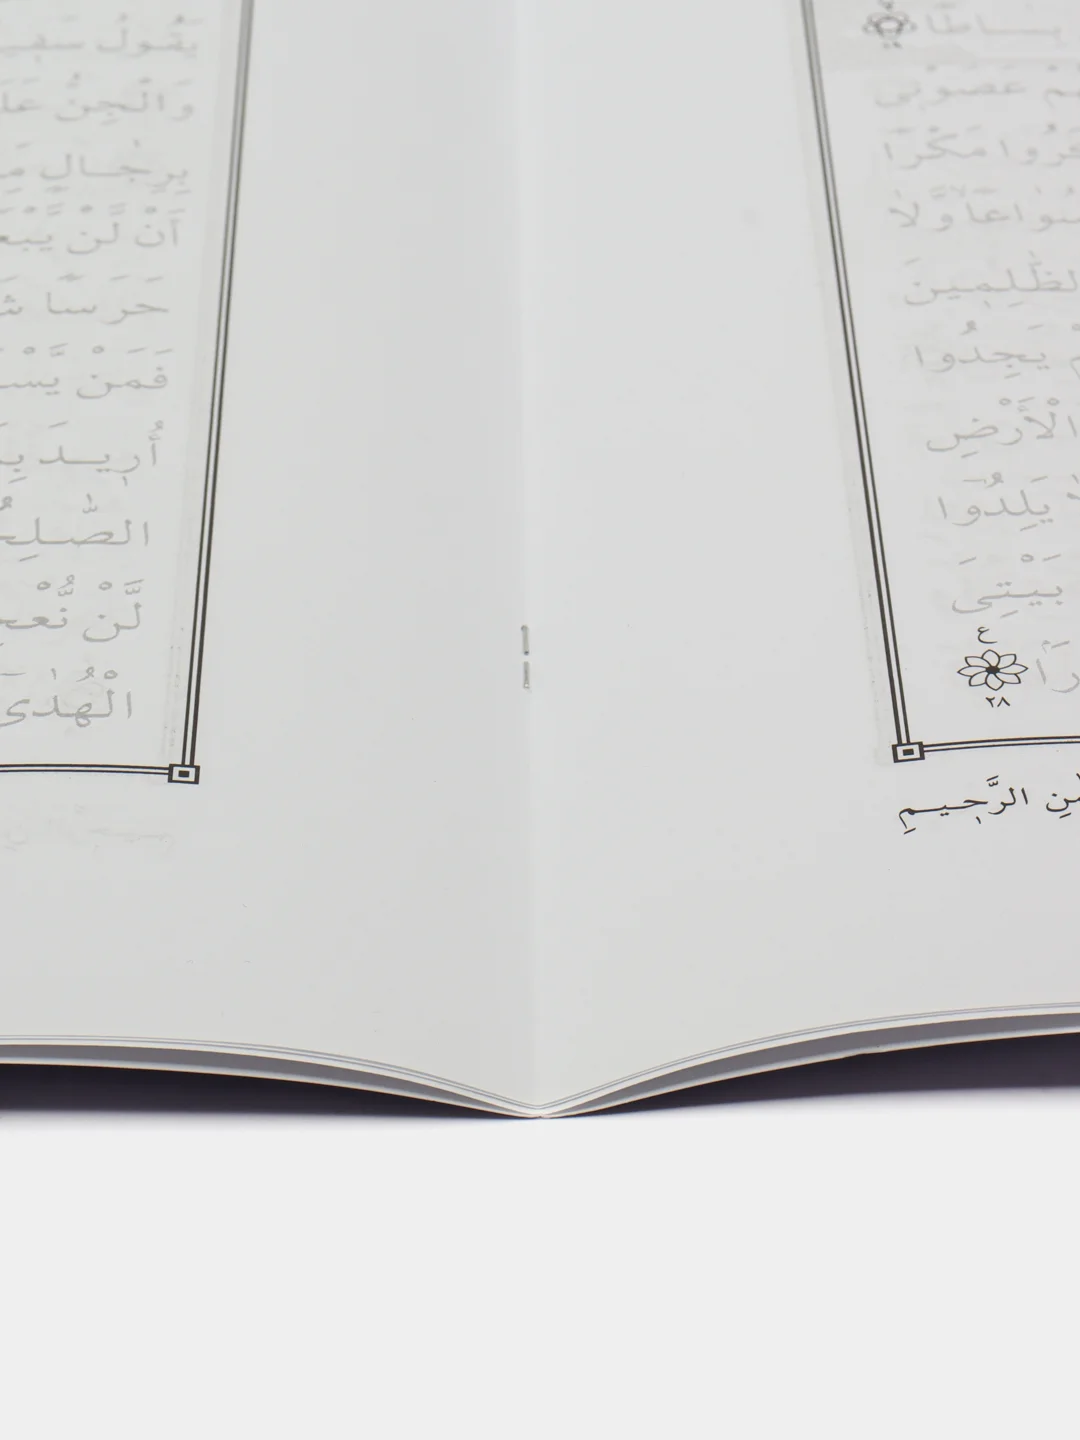 بِسَاطًا
هُمْ عَصَوْنِى
كَرُوا مَكْرًا
سُوَاعًا وَّلَا
الظّٰلِمِينَ
يَجِدُوا
الْأَرْضِ
يَلِدُوٓا
بَيْتِىَ
ع
٢٨
الرَّجِيمِ
يَقُولُ
وَالْجِنُّ
بِرِجَالٍ
اَنْ لَّنْ
حَرَسًا
فَمَنْ
أُرِيدَ
لَّنْ
الْهُدٰىٓ